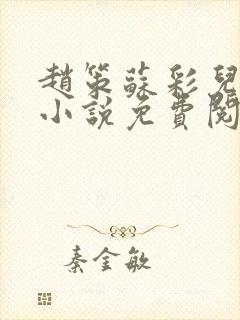 趙策蘇彩兒
小說免費閱
秦金敏